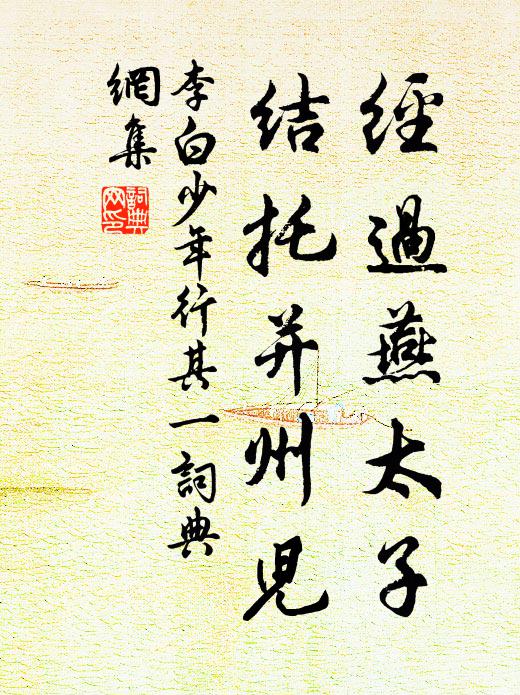 經過燕太子
結托并州兒
李白少年行其一詞典
網集
詞典
網印